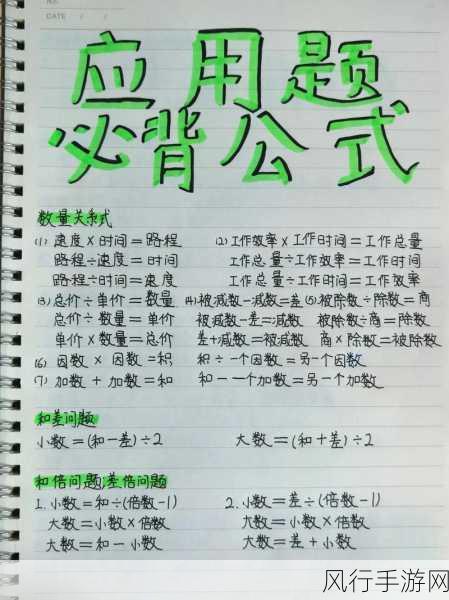 NO.
DATE / /
应用题
必背公式
数量关系式
(1) 速度×时间=路程 (2)工作效率×工作时间=工作总量
路程÷速度=时间 工作总量÷工作效率=工作时间
路程÷时间=速度 工作总量÷工作时间=工作效率
(3) 总价÷单价=数量 (4)被减数-减数=差 (5)被除数÷除数=商
总价÷数量=单价 被减数-差=减数 被除数÷商=除数
单价×数量=总价 差+减数=被减数 商×除数=被除数
(6) 因数×因数=积 积÷一个因数=另一个因数
(7) 加数+加数=和 和-一个加数=另一个加数
和差问题
小数=(和-差)÷2 大数=(和+差)÷2
和倍问题;差倍问题
1.小数=和÷(倍数-1) 2.小数=差÷(倍数-1)
大数=小数×倍数 大数=小数×倍数
大数=和-小数 大数=差+小数
风行手游网